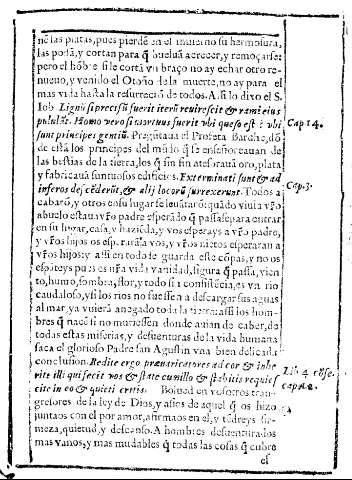 nẽ las plãtas, pues pierdẽ en el inuierno su hermosura,
las podã, y cortan para q̃ bueluã acrecer, y remoçarse:
pero el hõbre si le cortã vn braço no ay echar otro re-
nueuo, y venido el Otoño de la muerte, no ay para el
mas vida hasta la resurreciõ de todos. Assi lo dixo el S.
Iob. Lignũ si precisũ fuerit iterũ reuirescit & rami eius
pululãt. Homo vero si mortuus fuerit vbi queso est? vbi
sunt principes gentiũ. Pregũtaua el Profeta Baruc, dõ-
de estã los principes del mũdo q̃ se enseñoreauan de
las bestias de la tierra, los q̃ sin fin atesorauã oro, plata
y fabricauã suntuosos edificios. Exterminati sunt & ad
inferos descẽderũt, & alij locorũ surrexerunt. Todos a
cabarõ, y otros en su lugar se leuãtarõ: quãdo viuia vr̃o
abuelo estaua vr̃o padre esperãdo q̃ passase para entrar
en su lugar, casa, y haziẽda, y vos esperays a vr̃o padre,
y vr̃os hijos os esperarãn a vos, y vr̃os nietos esperaran a
vr̃os hijos: y assi en todo se guarda este cõpas, y no os
espãteys pues es nr̃a vida vanidad, figura q̃ passa, vien
to, humo, sombra, flor, y todo sin consistẽcia, es vn rio
caudaloso, y si los rios no fuessen a descargar sus aguas
al mar, ya vuiera anegado toda la tierra: assi los hom-
bres q̃ nacẽ si no muriessen donde auian de caber, de
todas estas miserias, y desuenturas de la vida humana
saca el glorioso Padre san Agustin vna bien delicada
conclusion. Redite ergo preuaricatores ad cor & inhe
rite illi qui fecit vos & state cum illo & stabitis requies
cite in eo & quieti eritis. Bolued en vosotros tran-
gresores de la ley de Dios, y asios de aquel q̃ os hizo
juntaos con el por amor, afirmaos en el, y tẽdreys fir-
meza, quietud, y descanso. A hombres desuenturados
mas vanos, y mas mudables q̃ todas las cosas q̃ cubre
el
Cap 14.
Cap. 3.
Lib. 4 cõfe.
cap. 12.